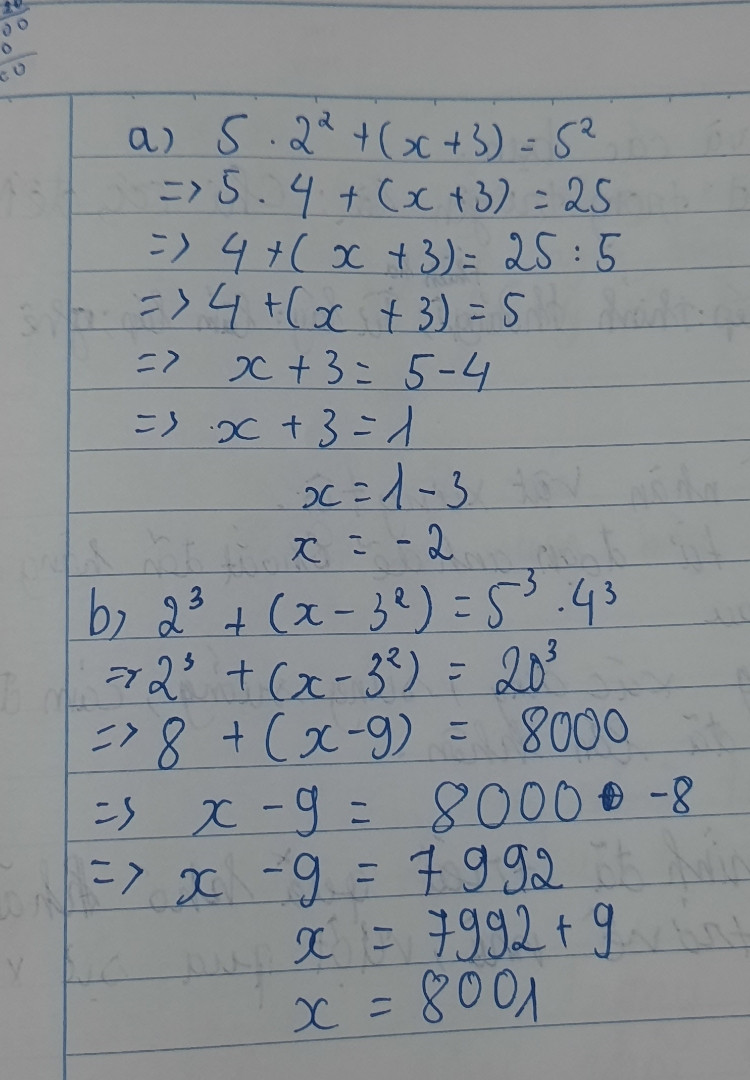 20
00
0
00
a) 5 . 2² + (x + 3) = 5²
=> 5 . 4 + (x + 3) = 25
=> 4 + ( x + 3) = 25 : 5
=> 4 + (x + 3) = 5
=> x + 3 = 5 - 4
=> x + 3 = 1
x = 1 - 3
x = - 2
b) 2³ + (x - 3²) = 5³ . 4³
=> 2³ + (x - 3²) = 20³
=> 8 + (x - 9) = 8000
=> x - 9 = 8000 - 8
=> x - 9 = 7992
x = 7992 + 9
x = 8001